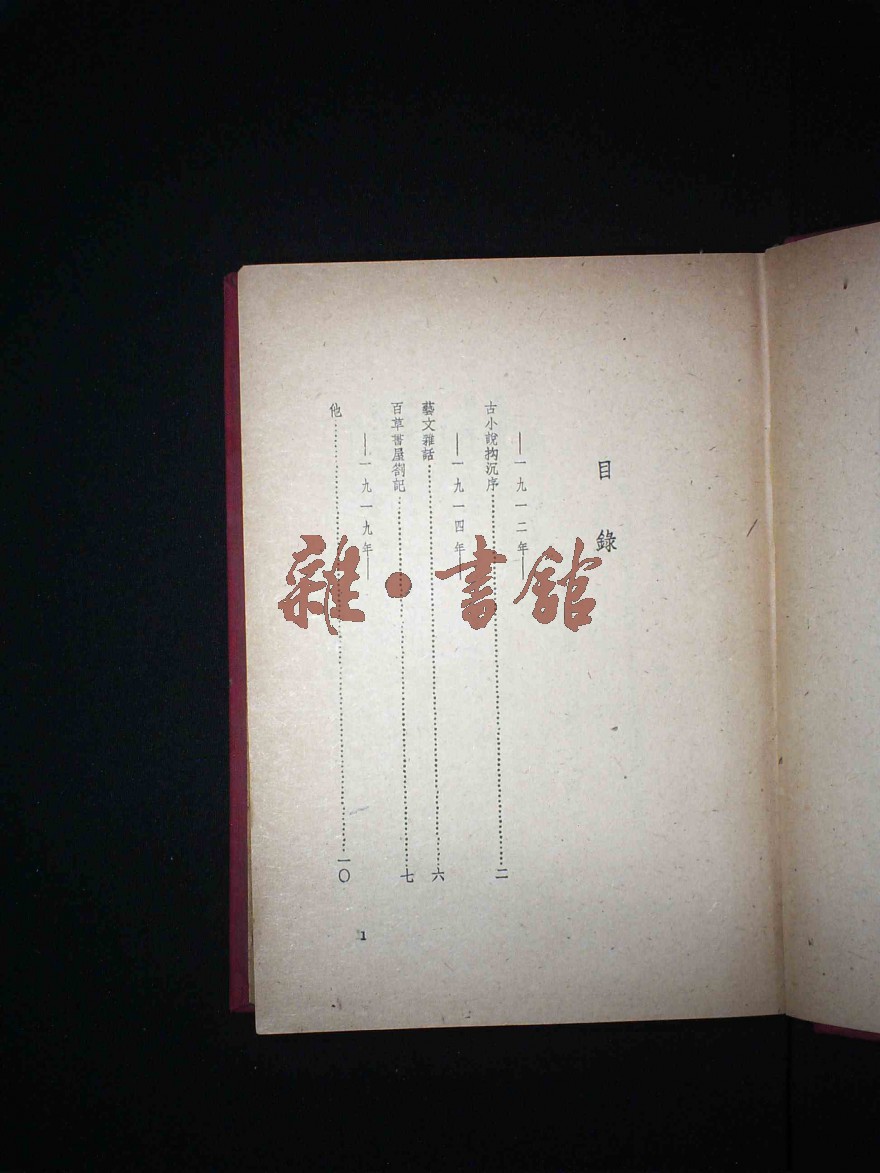 目錄
——一九一二年——
古小說拘沉序……二
——一九一四年——
藝文雜話……六
百草書屋劄記……七
——一九一九年——
他……一〇
1
雜·書館